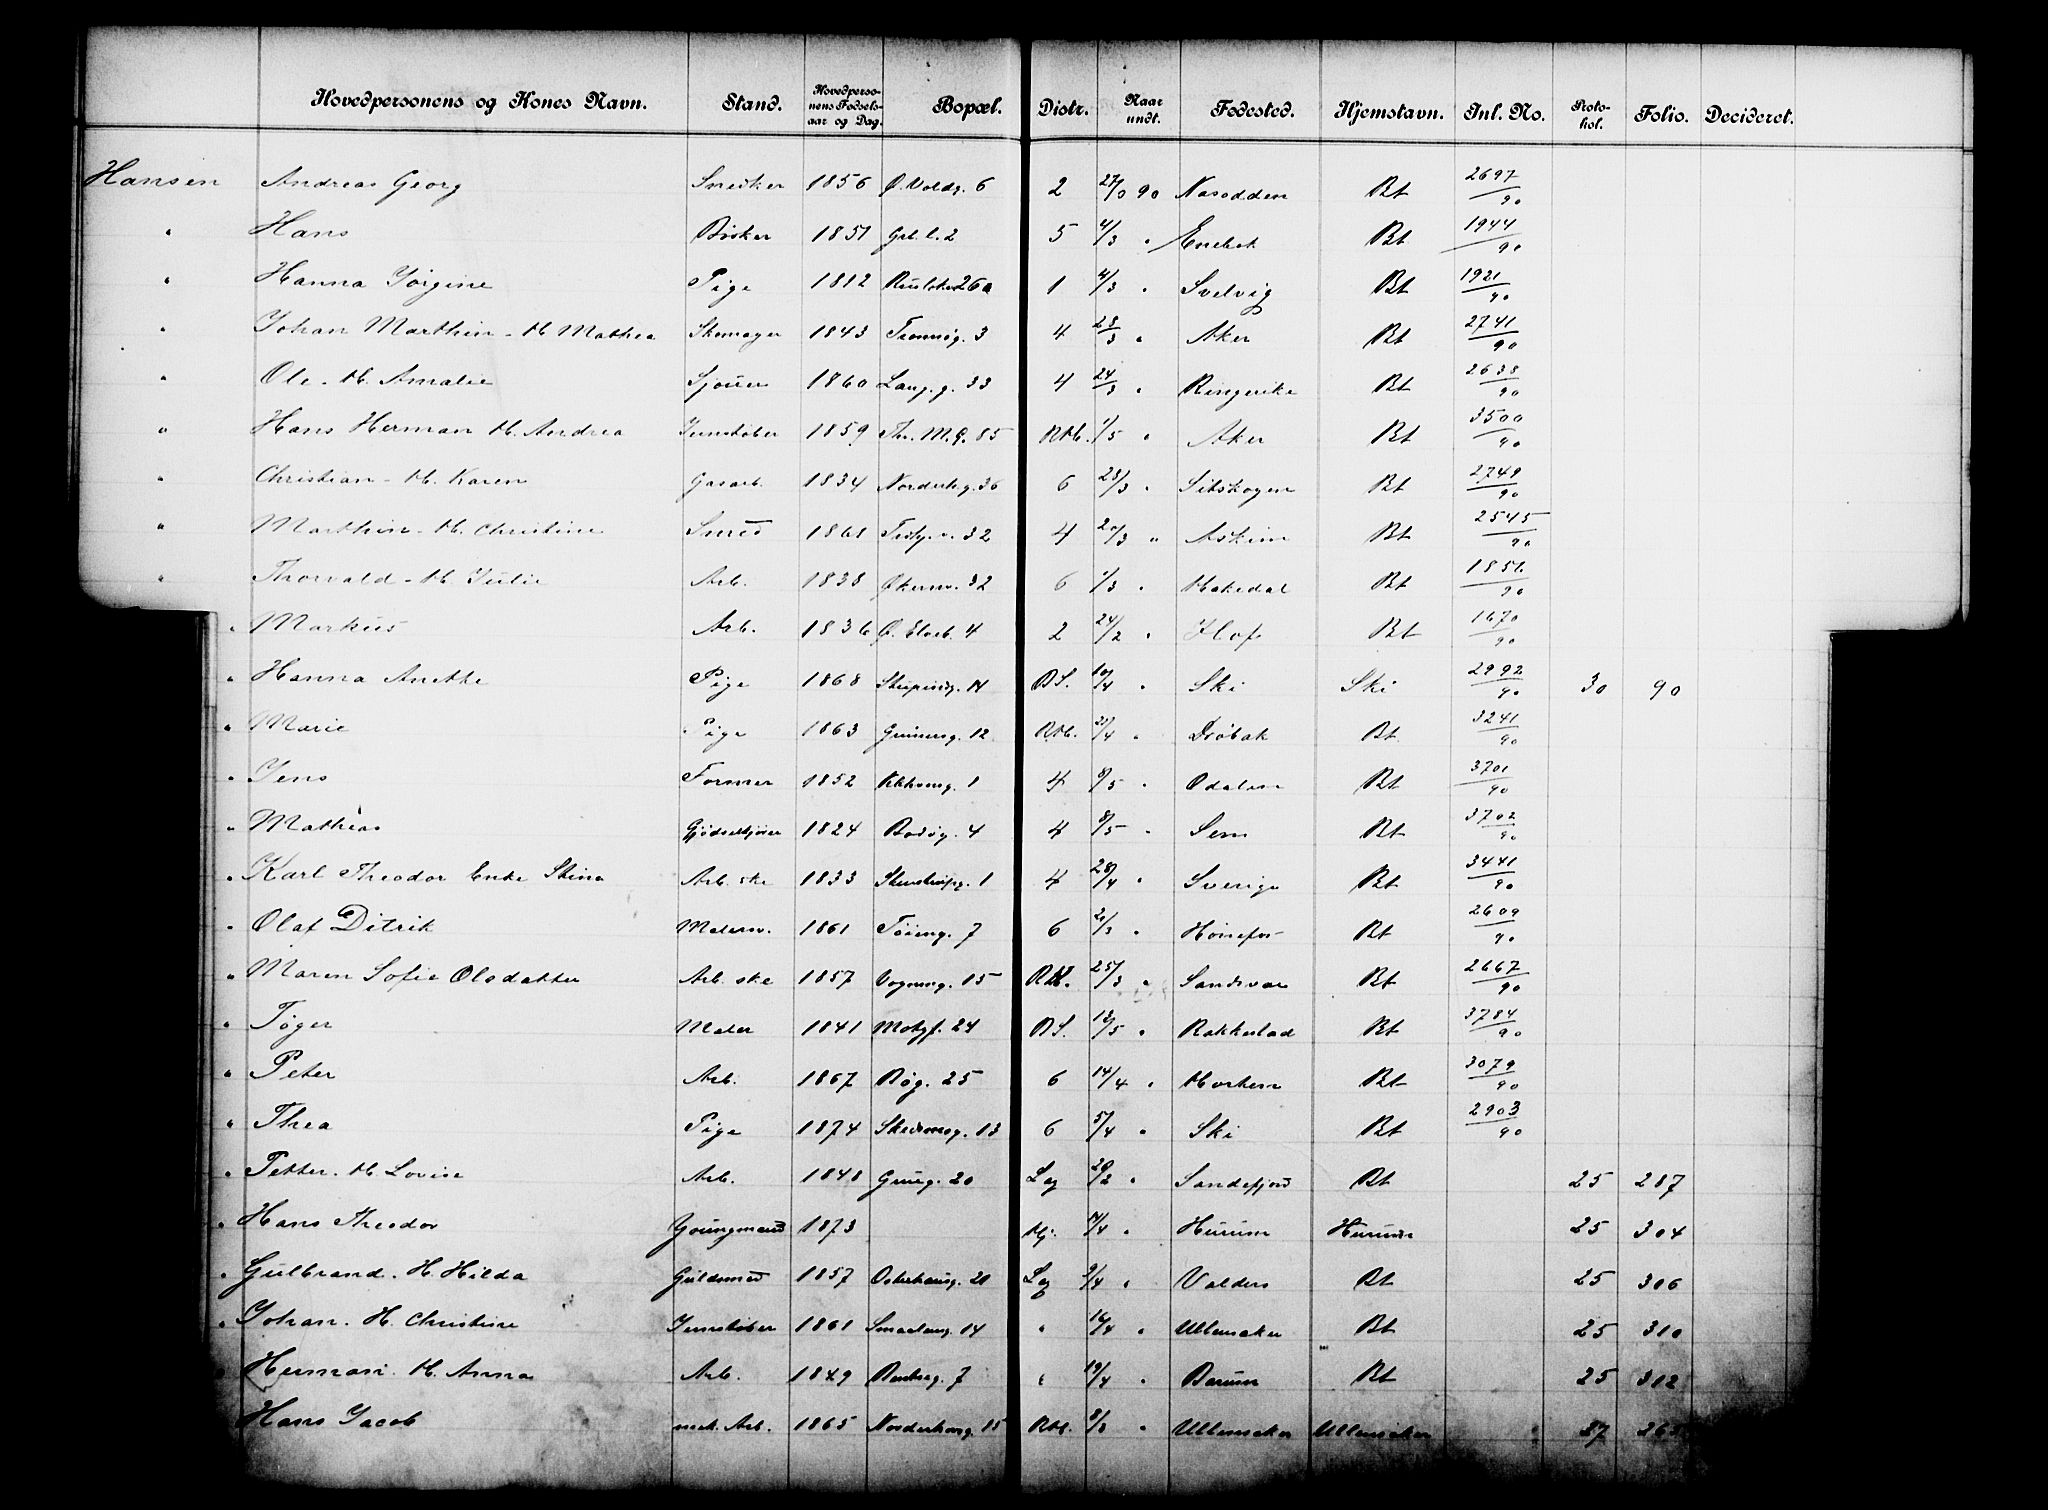 Hovedpersonens og Kones Navn. Stand. Hovedpersonens Fødselsaar og Dag. Bopæl. Distr. Naar undt. Fødested. Hjemstavn. Inl. No. Protokol. Folio. Decideret.
Hansen Andreas Georg Snedker 1856 Ø. Voldg. 6 2 90 Nesodden Bt 2697/90
" Hans Bødker 1851 Grl. l. 2 5 4/3 " Enebak Bt 1944/90
" Hanna Jørgine Pige 1812 26a 1 4/3 " Svelvig Bt 1921/90
" Johan Marthin - H. Mathea Skomager 1843 Tromsøg. 3 4 28/3 " Aker Bt 2741/90
" Ole - H. Amalie Sjouer 1860 Lang. g. 33 4 24/3 " Ringerike Bt 2638/90
" Hans Herman H. Andrea Jernstøber 1859 Thv. M. G. 85 RHb. 1/5 " Aker Bt 3500/90
" Christian - H. Karen Gasarb. 1834 Norderhg. 36 6 28/3 " Sitskogen Bt 2749/90
" Marthin - H. Christine Smed 1861 32 4 20/3 " Askim Bt 2545/90
" Thorvald - H. Julie Arb. 1838 Økernv. 32 6 1/3 " Hakedal Bt 1851/90
" Markus Arb. 1836 Ø. Elveb. 4 2 24/2 " Hof Bt 1670/90
" Hanna Anethe Pige 1868 14 BS. 10/4 " Ski Ski 2992/90 30 90
" Marie Pige 1863 Grünersg. 12 RHb. 21/4 " Drøbak Bt 3241/90
" Jens Former 1852 1 4 8/5 " Odalen Bt 3701/90
" Mathias Gjødselkjører 1824 Bodøg. 4 4 8/5 " Sem Bt 3702/90
" Karl Theodor Enke Stina Arb. ske 1833 Stenstrupg. 1 4 28/4 " Sverige Bt 3441/90
" Olaf Ditrik Malersv. 1861 Tøieng. 7 6 21/3 " Hønefos Bt 2609/90
" Maren Sofie Olsdatter Arb. ske 1857 Vognmg. 15 RH. 25/3 " Sandsvær Bt 2667/90
" Tøger Maler 1841 Motzf. 24 BS. 12/5 " Rakkestad Bt 3784/90
" Peter Arb. 1867 Bøg. 25 6 14/4 " Horten Bt 3079/90
" Thea Pige 1874 Skedsmog. 13 6 5/4 " Ski Bt 2903/90
" Petter - H. Lovise Arb. 1848 Grüng. 20 Lag 20/2 " Sandefjord Bt 25 287
" Hans Theodor Youngmand 1873 Hj. 4/4 " Hurum Hurum 25 304
" Gulbrand - H. Hilda Guldsmed 1857 Osterhausg. 21 Lag 9/4 " Valders Bt 25 306
" Johan - H. Christine Jernstøber 1861 Smaaleng. 14 " 16/4 " Ullensaker Bt 25 310
Herman - H. Anna Arb. 1849 7 " 19/4 " Barum Bt 25 312
Hans Jacob mek. Arb. 1865 Norderhovg. 15 RHb. 8/3 " Ullensaker Ullensaker 27